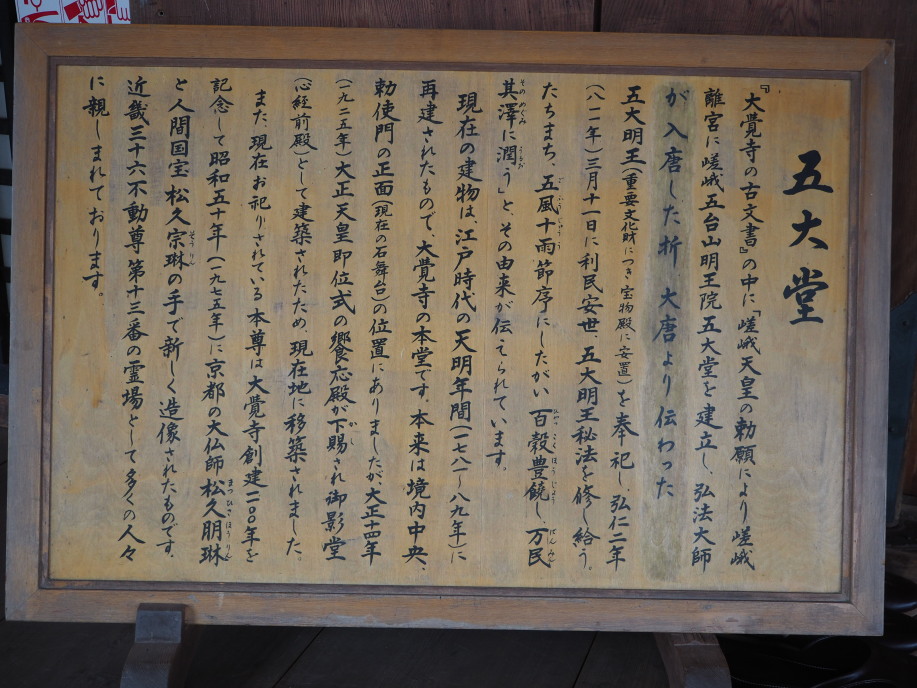 五大堂
『大覺寺の古文書』の中に『嵯峨天皇の勅願により嵯峨
離宮に嵯峨五台山明王院五大堂を建立し、弘法大師
が入唐した折 大唐より伝わった
五大明王(重要文化財につき宝物殿に安置)を奉祀し、弘仁二年
(八一一年)三月十一日に利民安世、五大明王秘法を修し給う。
たちまち、五風十雨節序にしたがい百穀豊饒し万民
其澤に潤う」と、その由来が伝えられています。
現在の建物は、江戸時代の天明年間(一七八一~八九年)に
再建されたもので、大覺寺の本堂です。本来は境内中央、
勅使門の正面(現在の石舞台)の位置にありましたが、大正十四年
(一九二五年)大正天皇即位式の饗応殿が下賜され御影堂
(心経前殿)として建築されたため、現在地に移築されました。
また、現在お祀りされている本尊は大覺寺創建一一〇〇年を
記念して昭和五十年(一九七五年)に京都の大仏師松久朋琳
と人間国宝松久宗琳の手で新しく造像されたものです。
近畿三十六不動尊第十三番の霊場として多くの人々
に親しまれております。